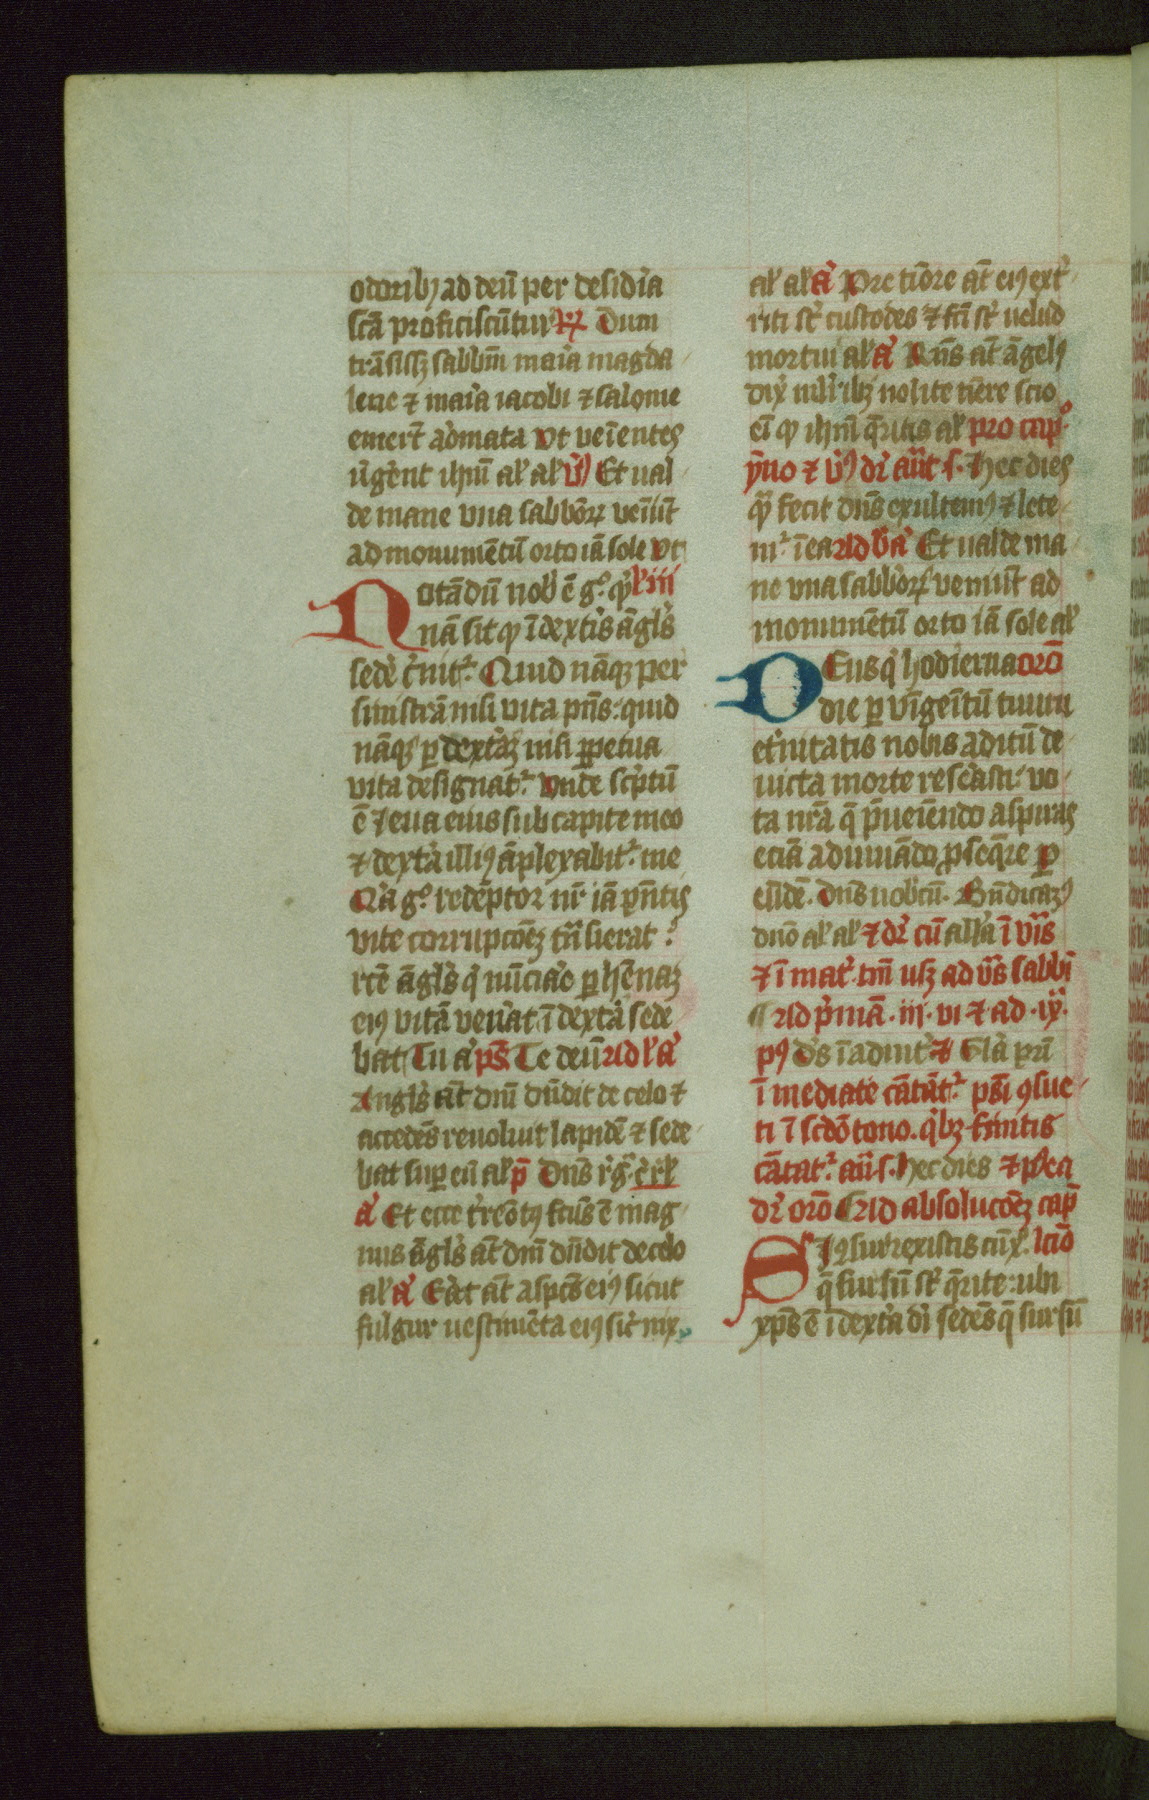 odoribꝫ ad deū per desid'ia
scā proficiscūtur R' Dum
trāsissꝫ sabbm̄ maīa magda
lene ⁊ maīa iacobi ⁊ salome
emer̄t aͦmata vt veīentes
ūgēnt ihm̄ al' al' v' Et ual
de mane vna sabbōꝝ veīūt
ad monumētū orto iā sole vt
Notādū nob' ē g° qͥ l' iii
nā sit qp ī dextīs āgl's
sedē c'nit'. Quid nāqꝫ per
sinistrā nisi vita pn̄s: quid
nāqꝫ ꝑ dext'aꝫ nisi ꝑpetua
vita designat'. vnde sc'ptū
ē leua eius sub capite meo
⁊ dext'a illiꝰ āplexabit' me
Q'a g° redēptor nr̄ iā p̄ntis
vite corrupcōeꝫ t̄nsierat
rcē āgl's q' nūciaē ꝑhēnaꝫ
eiꝰ vitā veñat ī dext'a sede
bat Tu a' ps̄ Te deū Ad l' a'
Angl's āt dn̄i d'ndit de celo ⁊
accedēs reuoluit lapidē ⁊ sede
bat suꝑ eū al' p̄ Dn̄s r'g'
a' Et ecce t'reōtꝰ fc̄us ē mag
nus āgl's āt dn̄i d'ndit de celo
al' a' Erāt āt aspc̄s eiꝰ sicut
fulgur uestimēta eiꝰ sic' nix
al' al' a' Pre tīore āt eiꝰ ext'
riti st̄ custodes ⁊ fc̄i st̄ uelud
mortui al' a' Rn̄s āt āgelꝰ
dix' mlr̄ibꝫ nolite tīere scio
eī qp ihm̄ q̄ritis al' pro cap°
ȳno ⁊ v' dr̄ an̄t s. Hec dies
qͣ fecit dn̄s exultemꝰ ⁊ lete
m' ī ea Ad b' a' Et ualde ma
ne vna sabbōꝝ veniūt ad
monumētū orto iā sole al'
Deus q' hodierna orō
die ꝑ vīgeītū tuum
et'nitatis nobis aditū de
uicta morte reserasti: vo
ta nr̄a q̄ p̄ueīendo aspiras
eciā adiuuādo ꝓseq̄re ꝑ
eūdē. Dn̄s nob'cū. Bn̄dicamꝰ
dnō al' al' ⁊ dr̄ cū all'a ī v'is
⁊ ī mat'. tm̄ usꝫ ad v's sabbi
Ad p'mā. iij. vi ⁊ ad. ix.
pꝰ Ds ī adiut' ⁊ Gl'a pri
ī mediate cātāt' ps̄i ꝯsue
ti ī scdō tono. q'bꝫ finitis
cātat' an̄ s. Hec dies ⁊ p'ea
dr̄ orō Ad absolucōeꝫ cap̄
Si ꝯsurrexistis cū x' lcīō
q̄ sursū st̄ q̄rite: ubi
xp̄s ē ī dext'a di sedēs q̄ sursū